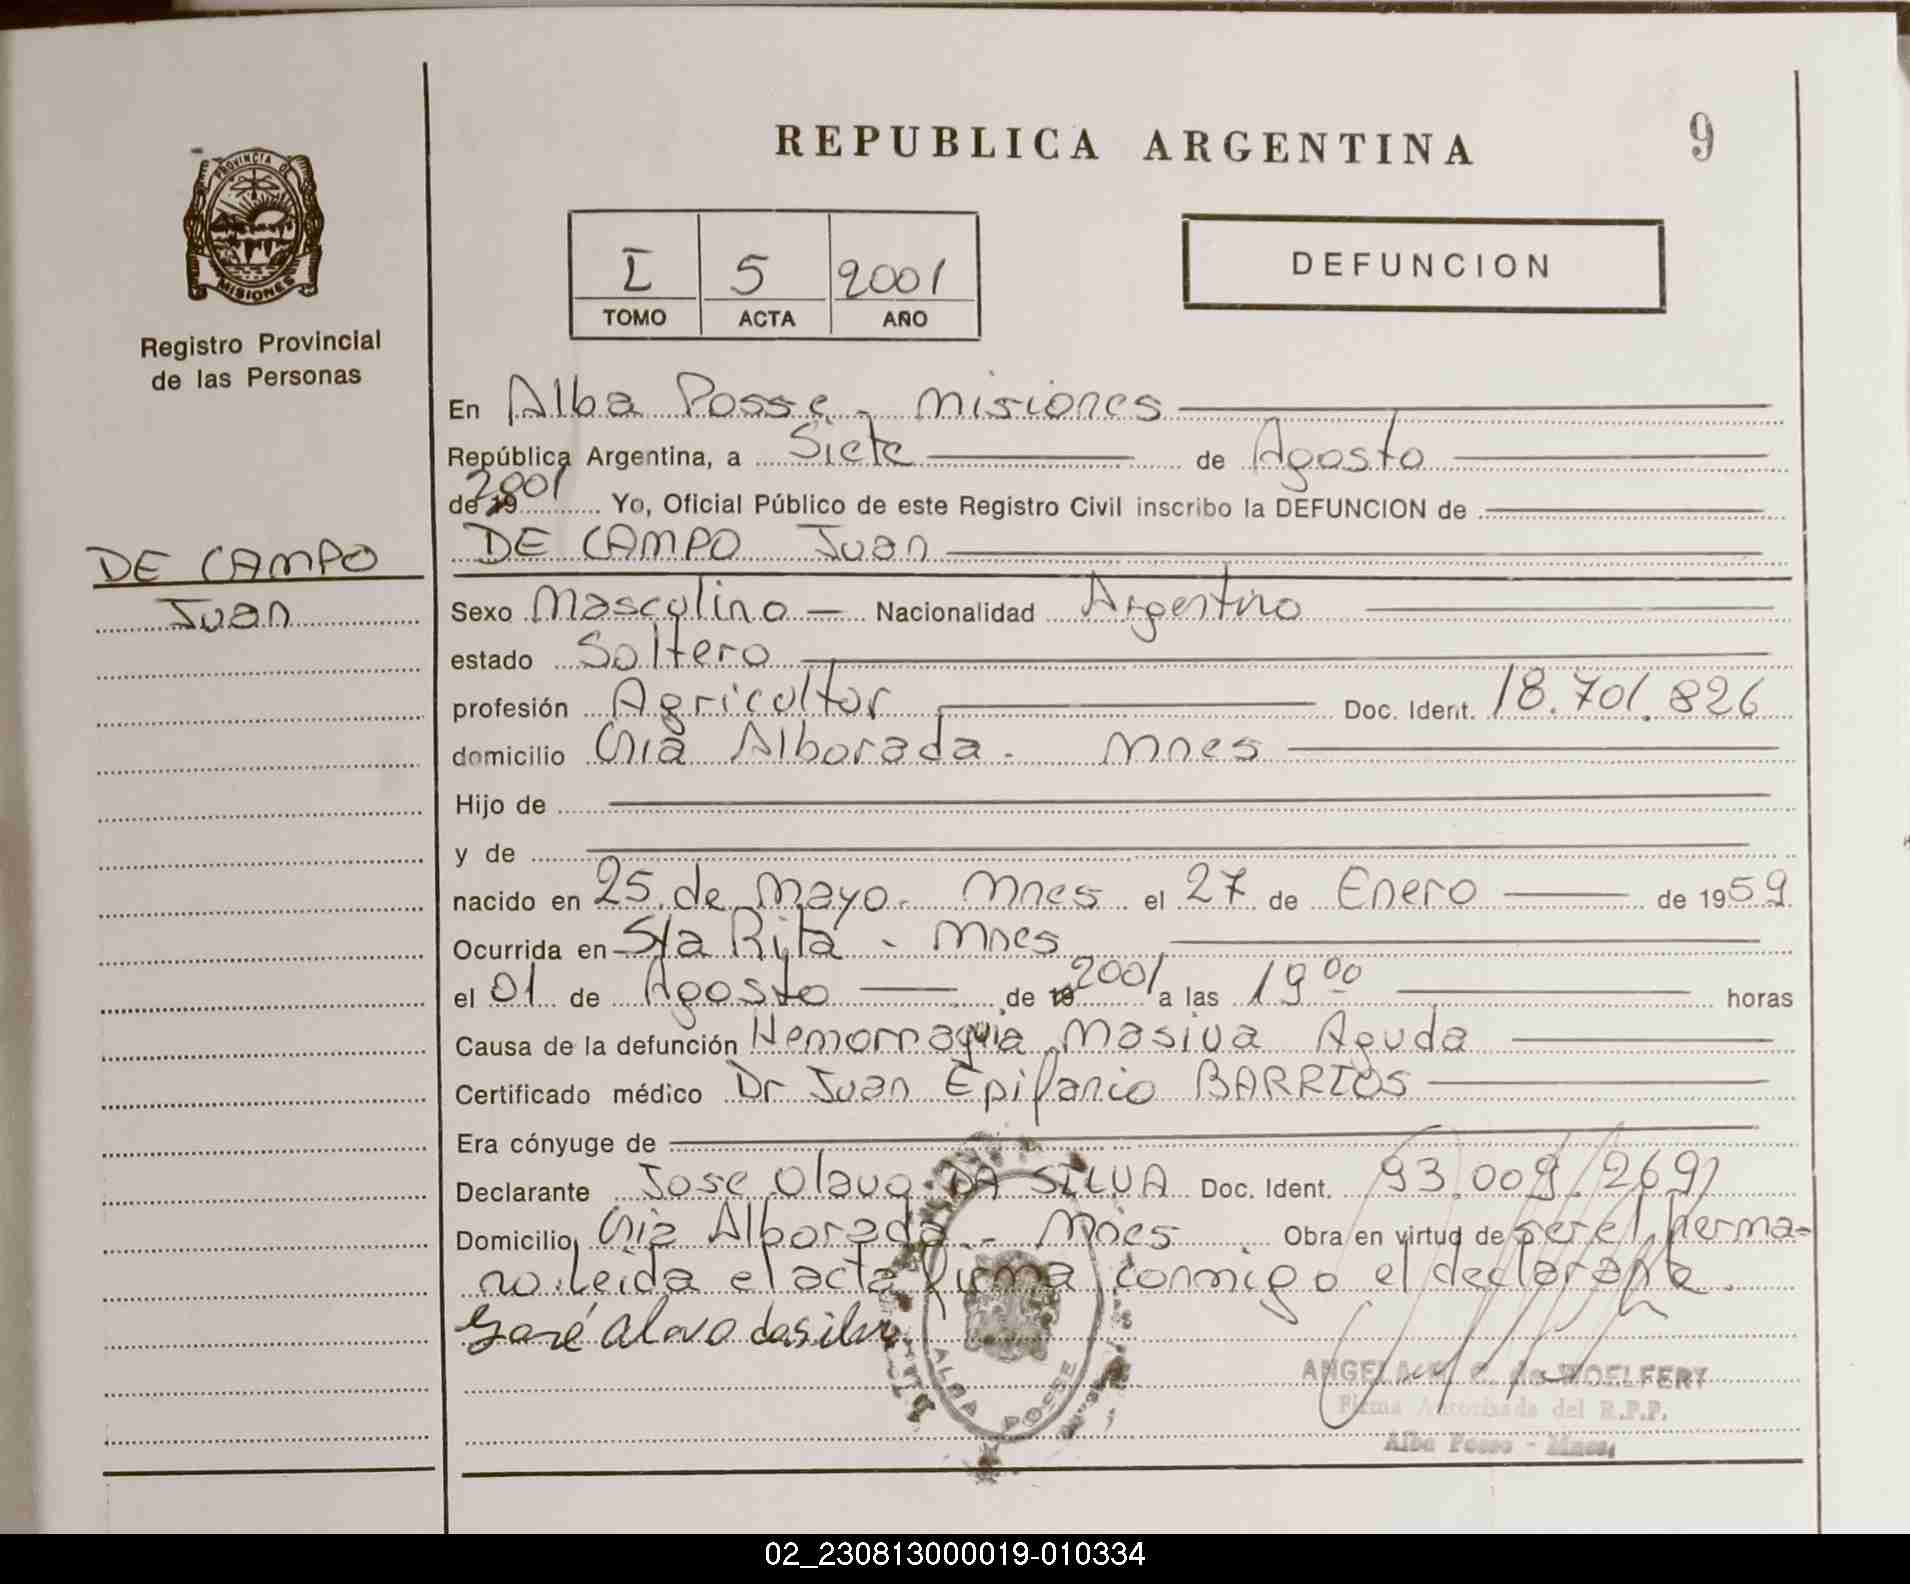 REPUBLICA ARGENTINA
9
PROVINCIA DE
MISIONES
Registro Provincial
de las Personas
I 5 2001
TOMO ACTA AÑO
DEFUNCION
En Alba Posse - Misiones
República Argentina, a Siete de Agosto
de 19 2001 Yo, Oficial Público de este Registro Civil inscribo la DEFUNCION de
DE CAMPO Juan
DE CAMPO
Juan
Sexo Masculino Nacionalidad Argentino
estado Soltero
profesión Agricultor Doc. Ident. 18.701.826
domicilio Cnia Alborada - Mnes
Hijo de
y de
nacido en 25 de Mayo - Mnes el 27 de Enero de 1959
Ocurrida en Sta Rita - Mnes
el 01 de Agosto de 19 2001 a las 19 00 horas
Causa de la defunción Hemorraguia Masiva Aguda
Certificado médico Dr Juan Epifanio BARRIOS
Era cónyuge de
Declarante Jose Olavo DA SILVA Doc. Ident. 93.009.269
Domicilio Cnia Alborada - Mnes Obra en virtud de ser el herma=
no. Leida el acta firma conmigo el declarante.
José Olavo da silva
ALBA POSSE
ANGELA de WOELFERT
Firma Autorizada del R.P.P.
Alba Posse - Mnes.
02_230813000019-010334